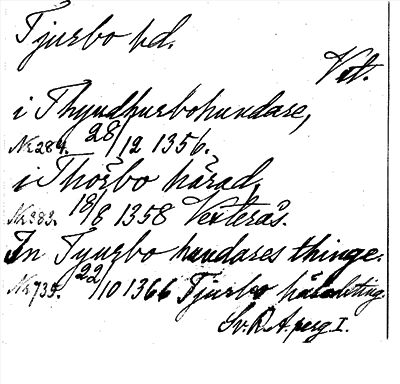 Tjurbo hd.
Vet.
i Thyudhurbohundare,
Nr 284. 28/12 1356.
i Thorbo härad,
Nr 383. 19/8 1358 Vesterås.
In Tyurbo hundares thinge.
Nr 735. 22/10 1366 Tjurbo häradsting
Sv. R. A. perg I.